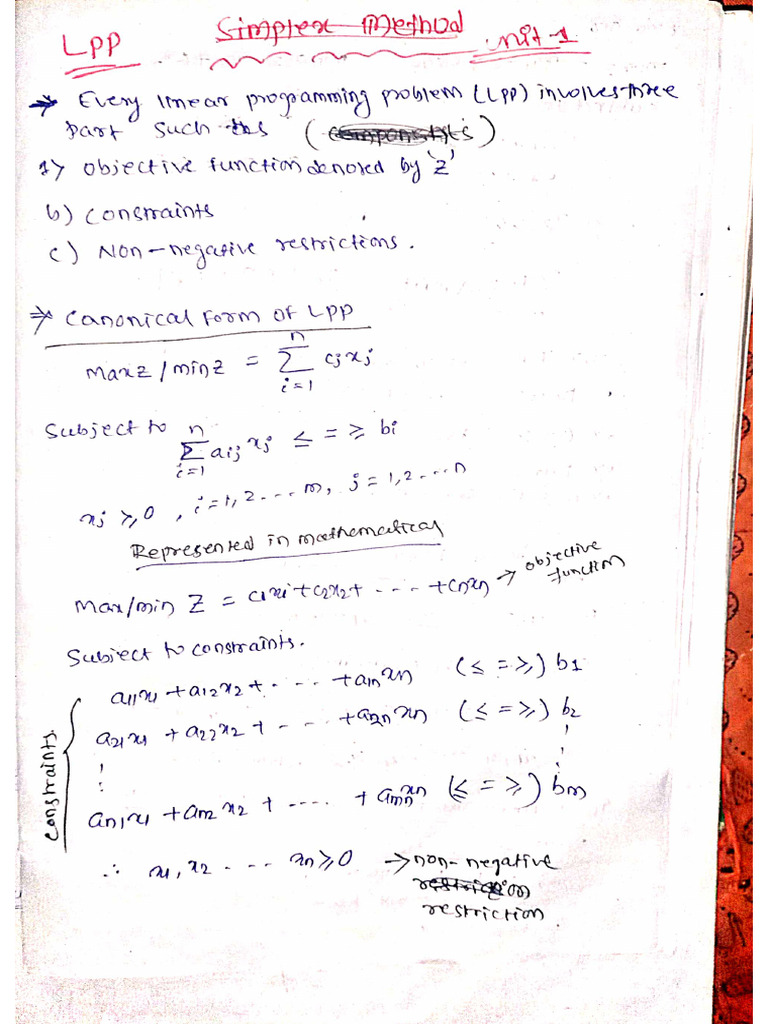 LPP Simplex Method Unit-1
→ Every linear programming problem (LPP) involves three
part such as (components)
1) objective function denoted by 'z'
b) constraints
c) Non-negative restrictions.
⇒ Canonical Form of LPP
n
Max z / min z = Σ cj xj
i=1
Subject to n
Σ aij xj ≤ = ≥ bi
i=1
xj ≥ 0, i = 1, 2 .... m, j = 1, 2 .... n
Represented in mathematical
Max/min Z = c1x1 + c2x2 + .... + cnxn → objective
function
Subject to constraints.
a11x1 + a12x2 + .... + a1nxn (≤ = ≥) b1
a21x1 + a22x2 + .... + a2nxn (≤ = ≥) b2
constraints.
an1x1 + am2x2 + ..... + amnxn (≤ = ≥) bm
∴ x1, x2 .... xn ≥ 0 → non-negative
restriction
restriction